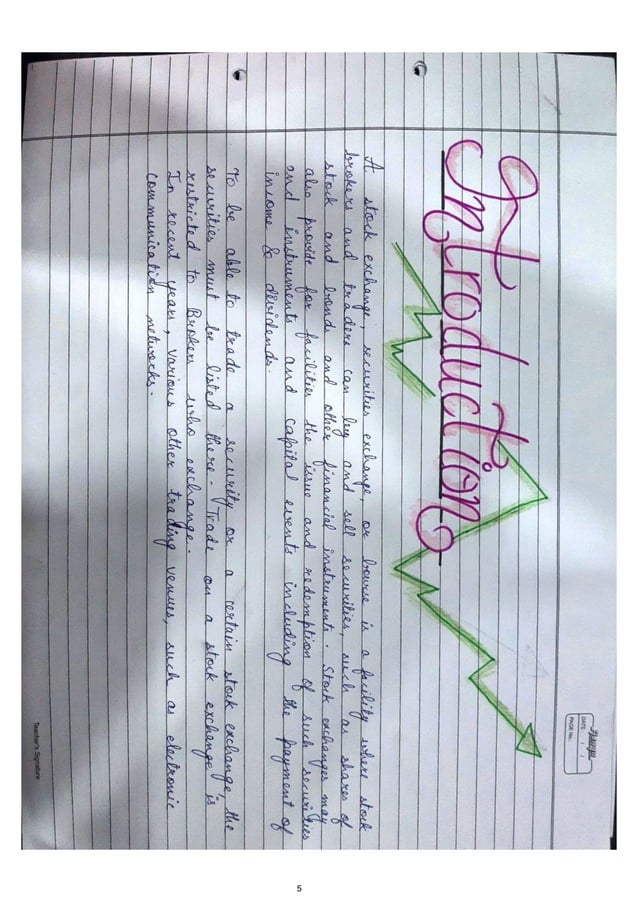 DATE : / /
PAGE No.:
Introduction
A stock exchange, securities exchange, or bourse is a facility where stock
brokers and traders can buy and sell securities, such as shares of
stock and bonds and other financial instruments. Stock exchanges may
also provide for facilities the issue and redemption of such securities
and instruments and capital events including the payment of
income & dividends.
To be able to trade a security or a certain stock exchange, the
securities must be listed there. Trade on a stock exchange is
restricted to Brokers who exchange.
In recent years, various other trading venues, such as electronic
communication networks.
Teacher's Signature
5